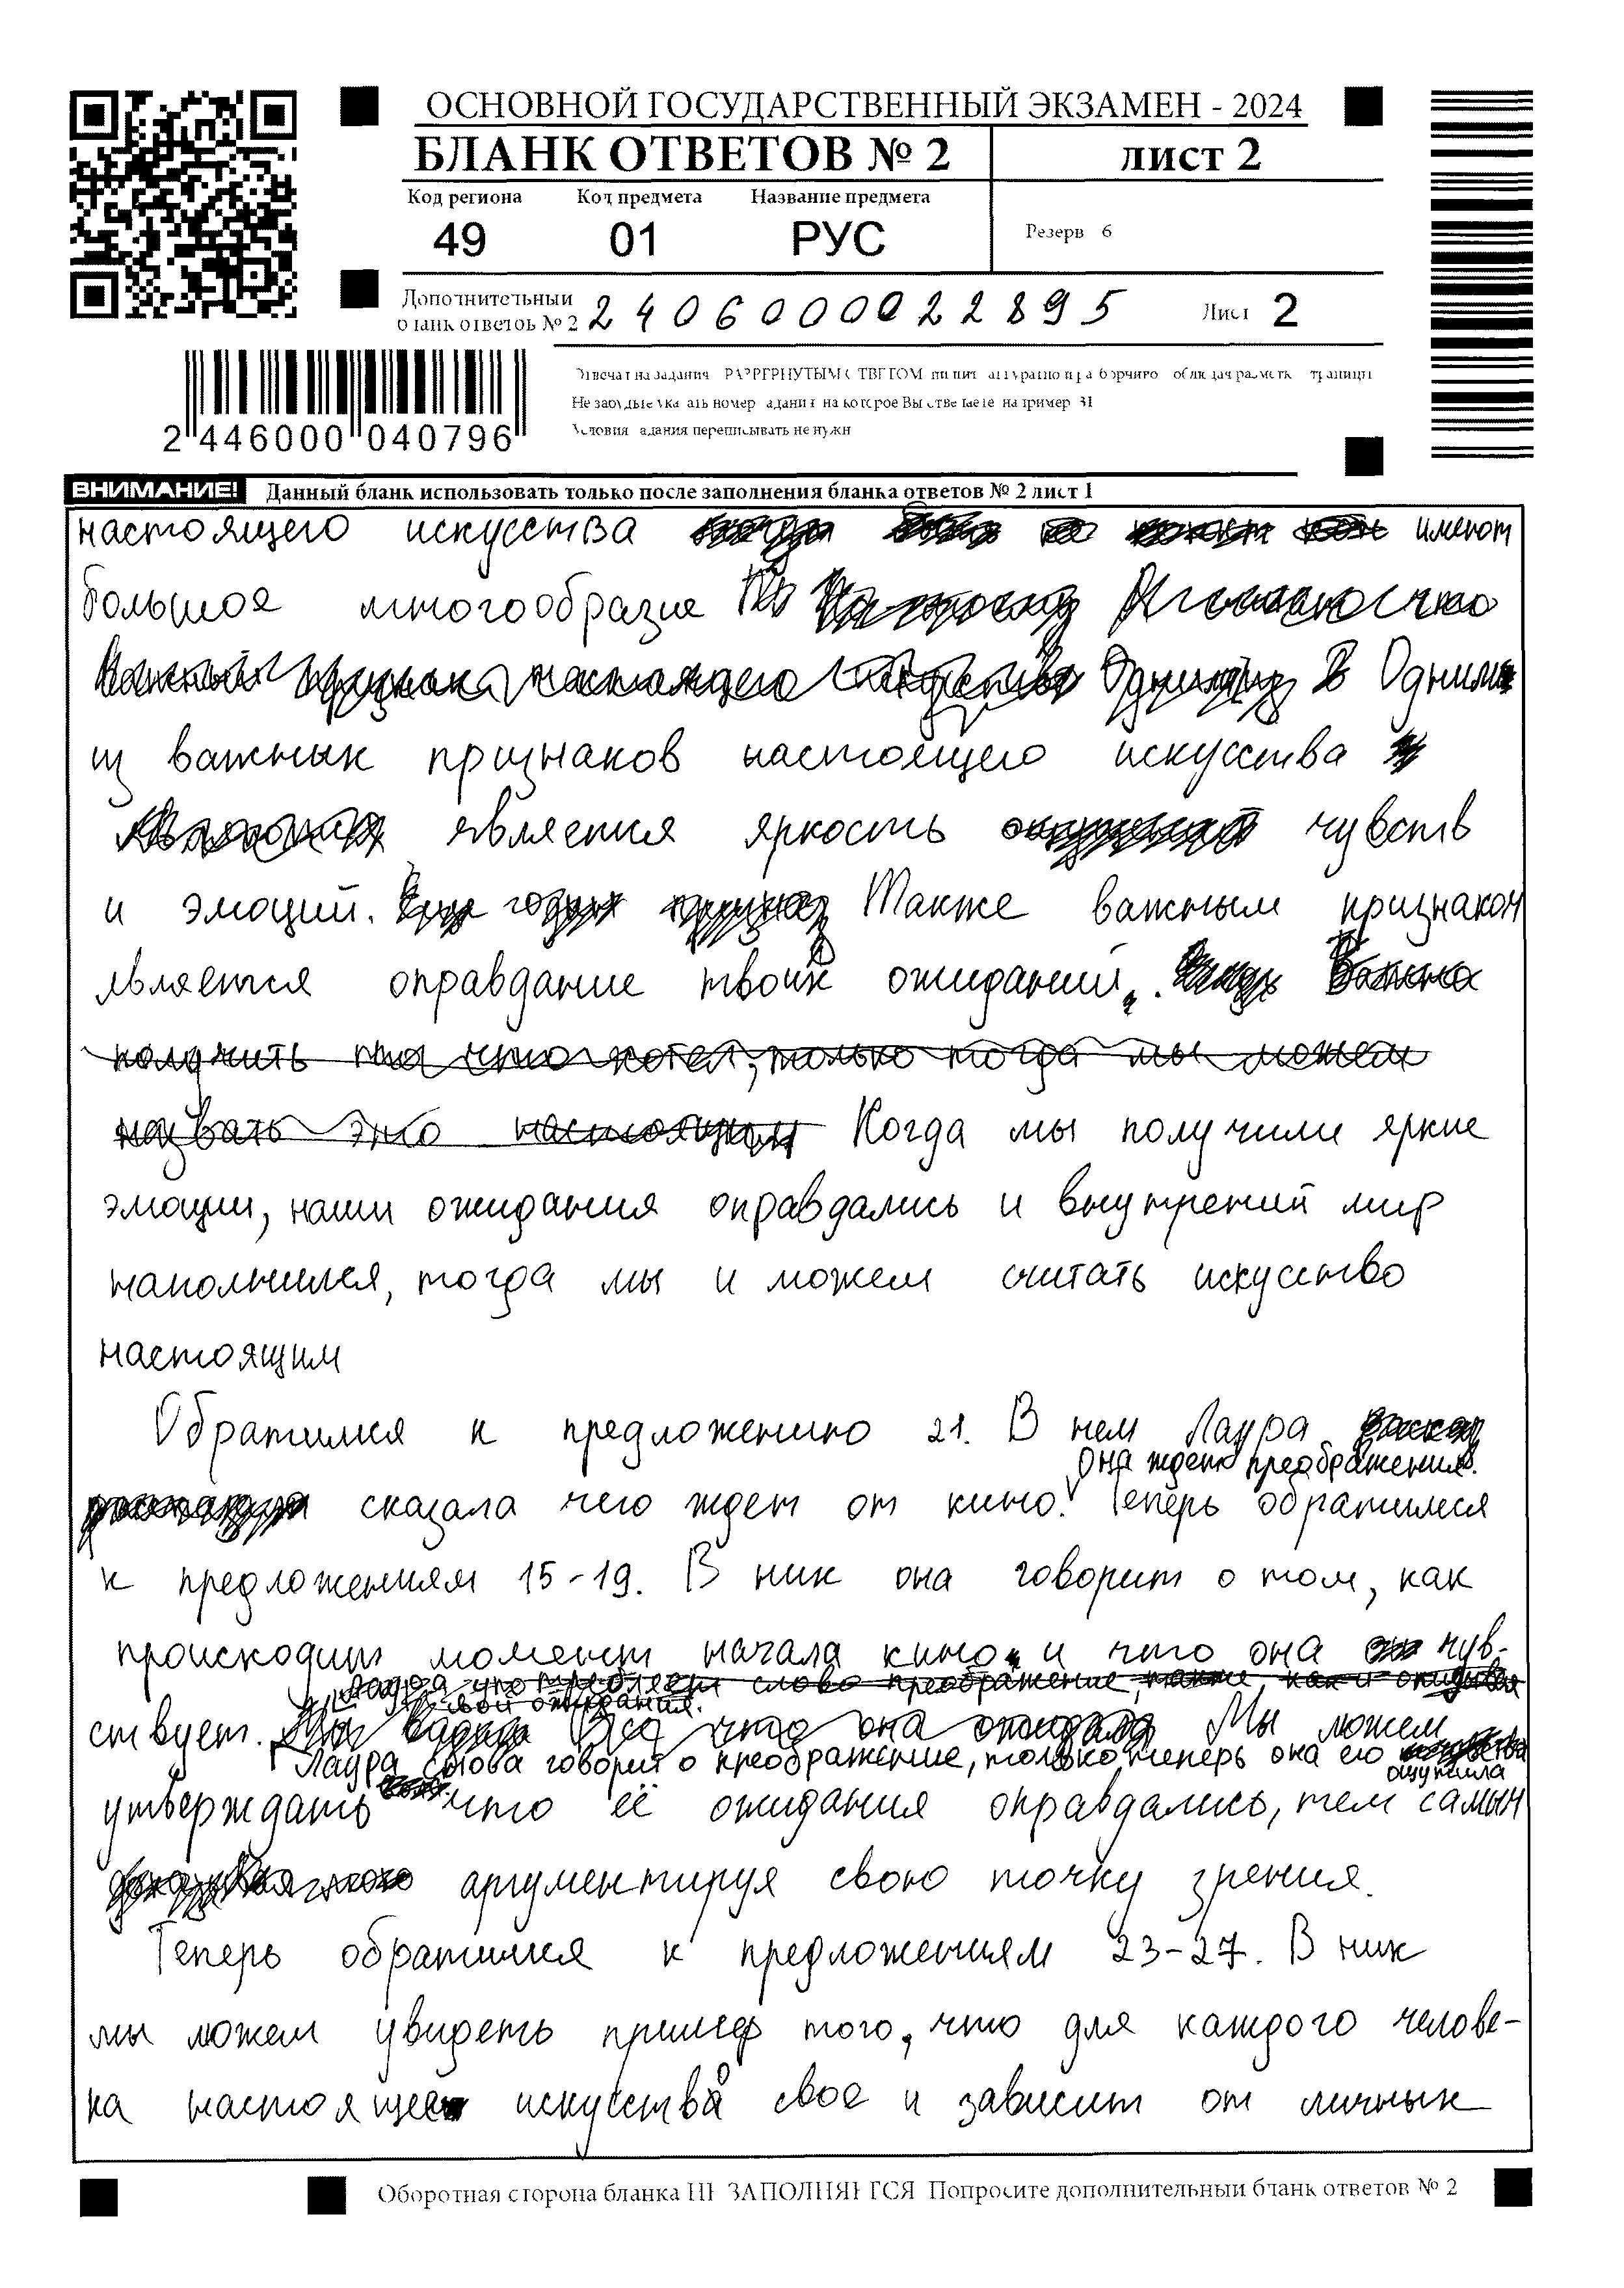 ОСНОВНОЙ ГОСУДАРСТВЕННЫЙ ЭКЗАМЕН - 2024
БЛАНК ОТВЕТОВ № 2
лист 2
Код региона Код предмета Название предмета
49 01 РУС
Резерв 6
Дополнительный
бланк ответов № 2
2406000022895
Лист 2
2 446000 040796
Не забудьте указать номер задания на которое Вы отвечаете например 31
Условия задания переписывать не нужн
ВНИМАНИЕ! Данный бланк использовать только после заполнения бланка ответов № 2 лист 1
настоящего искусства имеют
большое многообразие
Одним
из важных признаков настоящего искусства
является яркость чувств
и эмоций. Также важным признаком
является оправдание твоих ожиданий.
получить то что хотел, только тогда мы можем
назвать это настоящим Когда мы получили яркие
эмоции, наши ожидания оправдались и внутрений мир
наполнился, тогда мы и можем считать искусство
настоящим
Обратимся к предложению 21. В нем Лаура
она ждет преображения.
сказала чего ждет от кино. Теперь обратимся
к предложениям 15-19. В них она говорит о том, как
происходит момент начала кино и что она чув-
Лаура употребляет слово преображение, также, как и
свои ожидания.
ствует. Мы можем
Лаура снова говорит о преображение, только теперь она его
ощутила
утверждать что её ожидания оправдались, тем самым
аргументируя свою точку зрения.
Теперь обратимся к предложениям 23-27. В них
мы можем увидеть пример того, что для каждого челове-
ка настоящее искусство свое и зависит от личных
Оборотная сторона бланка НЕ ЗАПОЛНЯЕТСЯ Попросите дополнительный бланк ответов № 2